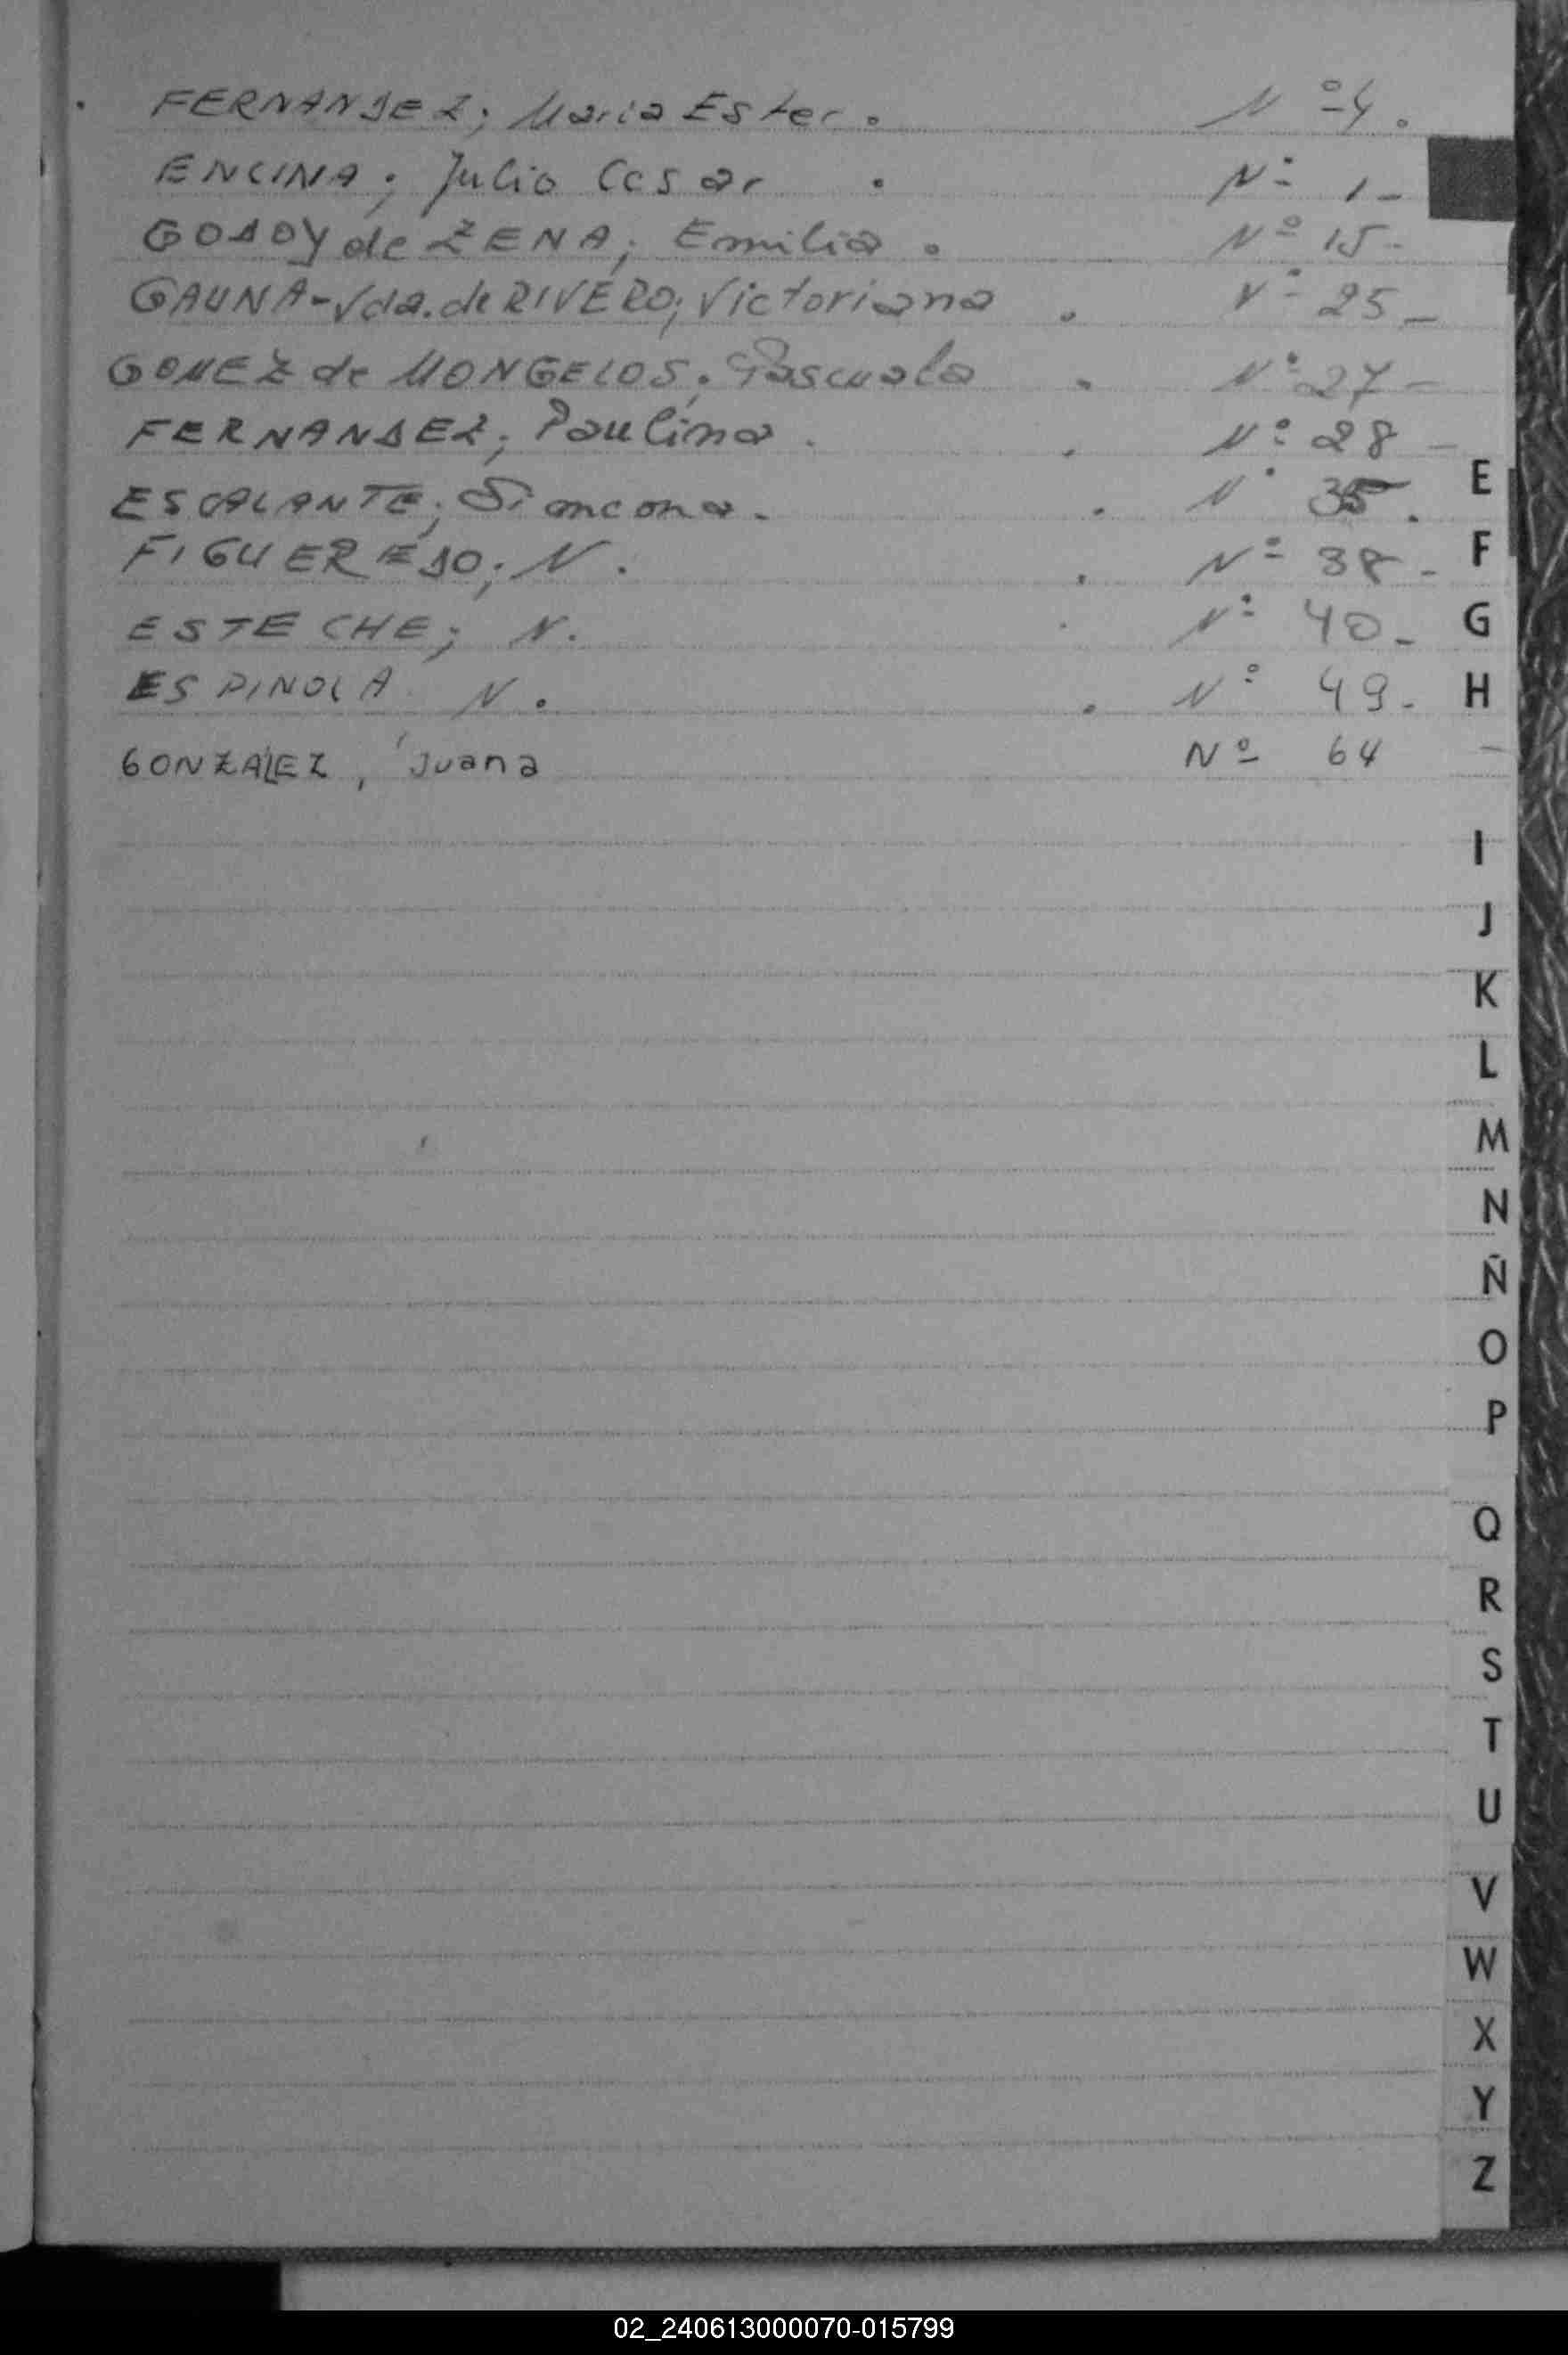 FERNANDEZ; Maria Ester. Nº 4.
ENCINA; Julio Cesar. Nº 1-
GODOY de ZENA; Emilia. Nº 15-
GAUNA-Vda. de RIVERO; Victoriana. Nº 25-
GOMEZ de MONGELOS; Pascuala. Nº 27-
FERNANDEZ; Paulina. Nº 28-
ESCALANTE; Simeona. Nº 35.
FIGUEREDO; N. Nº 38-
ESTECHE; N. Nº 40-
ESPINOLA N. Nº 49-
GONZALEZ, Juana Nº 64 -
E
F
G
H
I
J
K
L
M
N
Ñ
O
P
Q
R
S
T
U
V
W
X
Y
Z
02_240613000070-015799